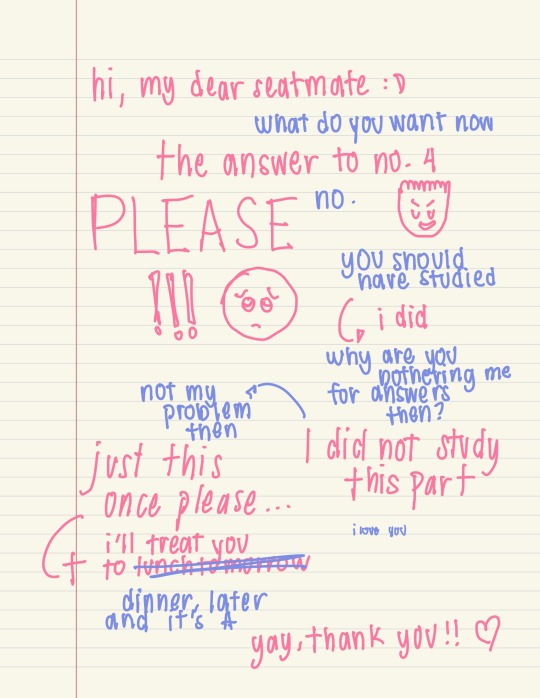 hi, my dear seatmate :D
what do you want now
the answer to no. 4
PLEASE
no.
!!!
you should
have studied
i did
why are you
bothering me
for answers
then?
I did not study
this part
not my
problem
then
just this
once please...
i love you
i'll treat you
to lunch tomorrow
dinner, later
and it's A
yay, thank you!! ♡